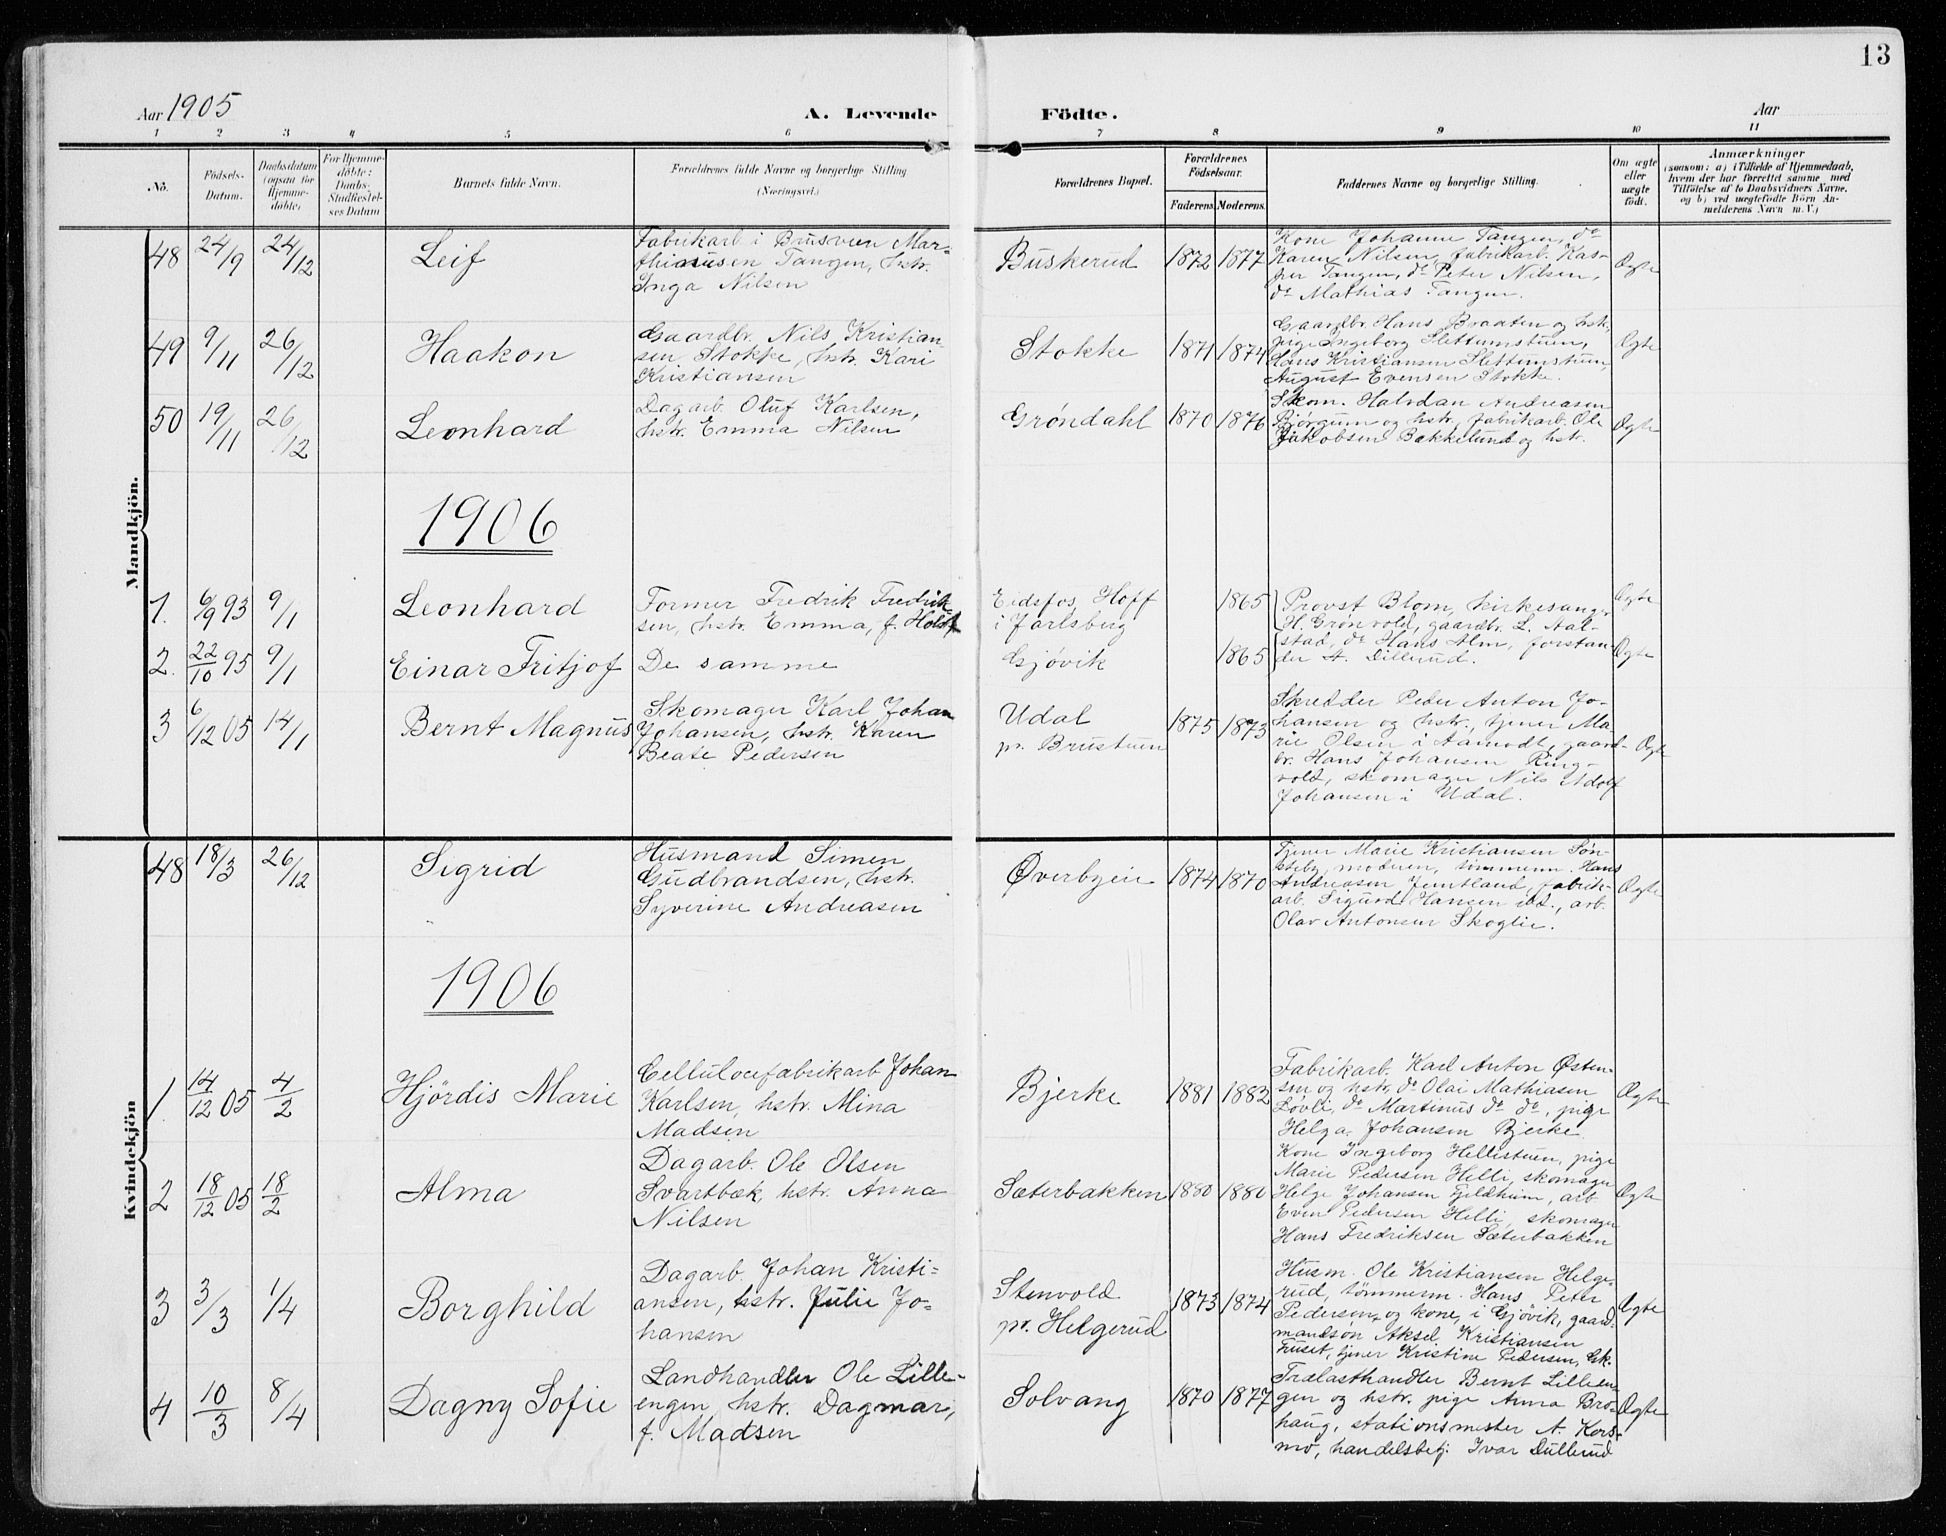 13
Aar 1905
A. Levende Födte.
Aar
1 2 3 4 5 6 7 8 9 10 11
No.
Födsels-
Datum.
Daabsdatum
(ogsaa for
Hjemme-
döbte)
For Hjemme-
döbte:
Daabs-
Stadfæstel-
ses Datum
Barnets fulde Navn.
Forældrenes fulde Navne og borgerlige Stilling
(Næringsvei.)
Forældrenes Bopæl.
Forældrenes
Födselsaar.
Faderens. Moderens.
Faddernes Navne og borgerlig Stilling.
Om ægte
eller
uægte
födt.
Anmærkninger
(saasom: a) i Tilfælde af Hjemmedaab,
hvem der har forrettet samme med
Tilföielse af to Daabsvidners Navne,
og b) ved uægtefödte Börn An-
melderens Navn m.V.)
Mandkjön.
48 24/9 24/12 Leif
Fabrikarb i Brusveen Mar-
thinusen Tangen, hstr.
Inga Nilsen
Buskerud 1872 1877
Kone Johanne Tangen, do
Karen Nilsen, fabrikarb. Kas-
per Tangen, do Peter Nilsen,
do Mathias Tangen.
Ægte
49 9/11 26/12 Haakon
Gaardbr. Nils Kristian-
sen Stokke, hstr. Kari
Kristiansen
Stokke 1871 1874
Gaardbr. Hans Braaten og hstr,
pige Ingeborg Slettumstuen,
Hans Kristiansen Slettumstuen,
August Evensen Stokke.
Ægte
50 19/11 26/12 Leonhard
Dagarb. Oluf Karlsen,
hstr. Emma Nilsen
Grøndahl 1870 1876
Skom. Halvdan Andreasen
Bjørgum og hstr, fabrikarb. Ole
Jakobsen Bakkelund og hstr.
Ægte
1906
1. 6/9 93 9/1 Leonhard
Former Fredrik Fredrik-
sen, hstr. Emma, f. Holst
Eidsfos, Hoff
i Jarlsberg
1865
Provst Blom, kirkesang.
H. Grønvold, gaardbr. L. Aal-
stad, do Hans Alm, forstan-
der A. Dillerud.
Ægte
2. 22/10 95 9/1 Einar Fritjof
De samme
Gjøvik
1865
Ægte
3 6/12 05 14/1 Bernt Magnus
Skomager Karl Johan
Johansen, hstr. Karen
Beate Pedersen
Udal
pr. Brustuen
1875 1873
Skredder Peder Anton Jo-
hansen og hstr., tjener Ma-
rie Olsen i Aamodt, gaard-
br. Hans Johansen Ring-
vold, skomager Nils Adolf
Johansen i Udal.
Ægte
Kvindekjön
48 18/3 26/12 Sigrid
Husmand Simen
Gudbrandsen, hstr.
Syverine Andreasen
Øverbyeie 1874 1870
Tjener Marie Kristiansen Søn-
steby, moderen, tømmerm. Hans
Andreasen Jemtland, fabrik-
arb. Sigurd Hansen ibd., arb.
Olav Antonsen Skoglie.
Ægte
1906
1. 14/12 05 4/2 Hjördis Marie
Cellulosefabrikarb Johan
Karlsen, hstr. Mina
Madsen
Bjerke 1881 1882
Fabrikarb. Karl Anton Østen-
sen og hstr, do Olai Mathiasen
Løvli, do Martinus do do, pige
Helga Johansen Bjerke.
Ægte
2 18/12 05 18/2 Alma
Dagarb. Ole Olsen
Svartbæk, hstr. Anna
Nilsen
Sæterbakken 1880 1880
Kone Ingeborg Hellistuen, pige
Marie Pedersen Helli, skomager
Helge Johansen Fjeldheim, arb
Even Pedersen Helli, skomager
Hans Fredriksen Sæterbakken
Ægte
3 3/3 1/4 Borghild
Dagarb. Johan Kristi-
ansen, hstr. Julie Jo-
hansen
Stenvold
pr. Helgerud
1873 1874
Husm. Ole Kristiansen Helge-
rud, tømmerm. Hans Peter
Pedersen og kone, i Gjøvik, gaard-
mandsøn Aksel Kristiansen
Huset, tjener Kristine Pedersen,
Ægte
4 10/3 8/4 Dagny Sofie
Landhandler Ole Lille-
engen, hstr. Dagmar,
f. Madsen
Solvang 1870 1877
Trælasthandler Bernt Lilleen-
gen og hstr, pige Anna Bro-
haug, stationsmester A. Kors-
mo, handelsbetj. Ivar Dullerud
Ægte